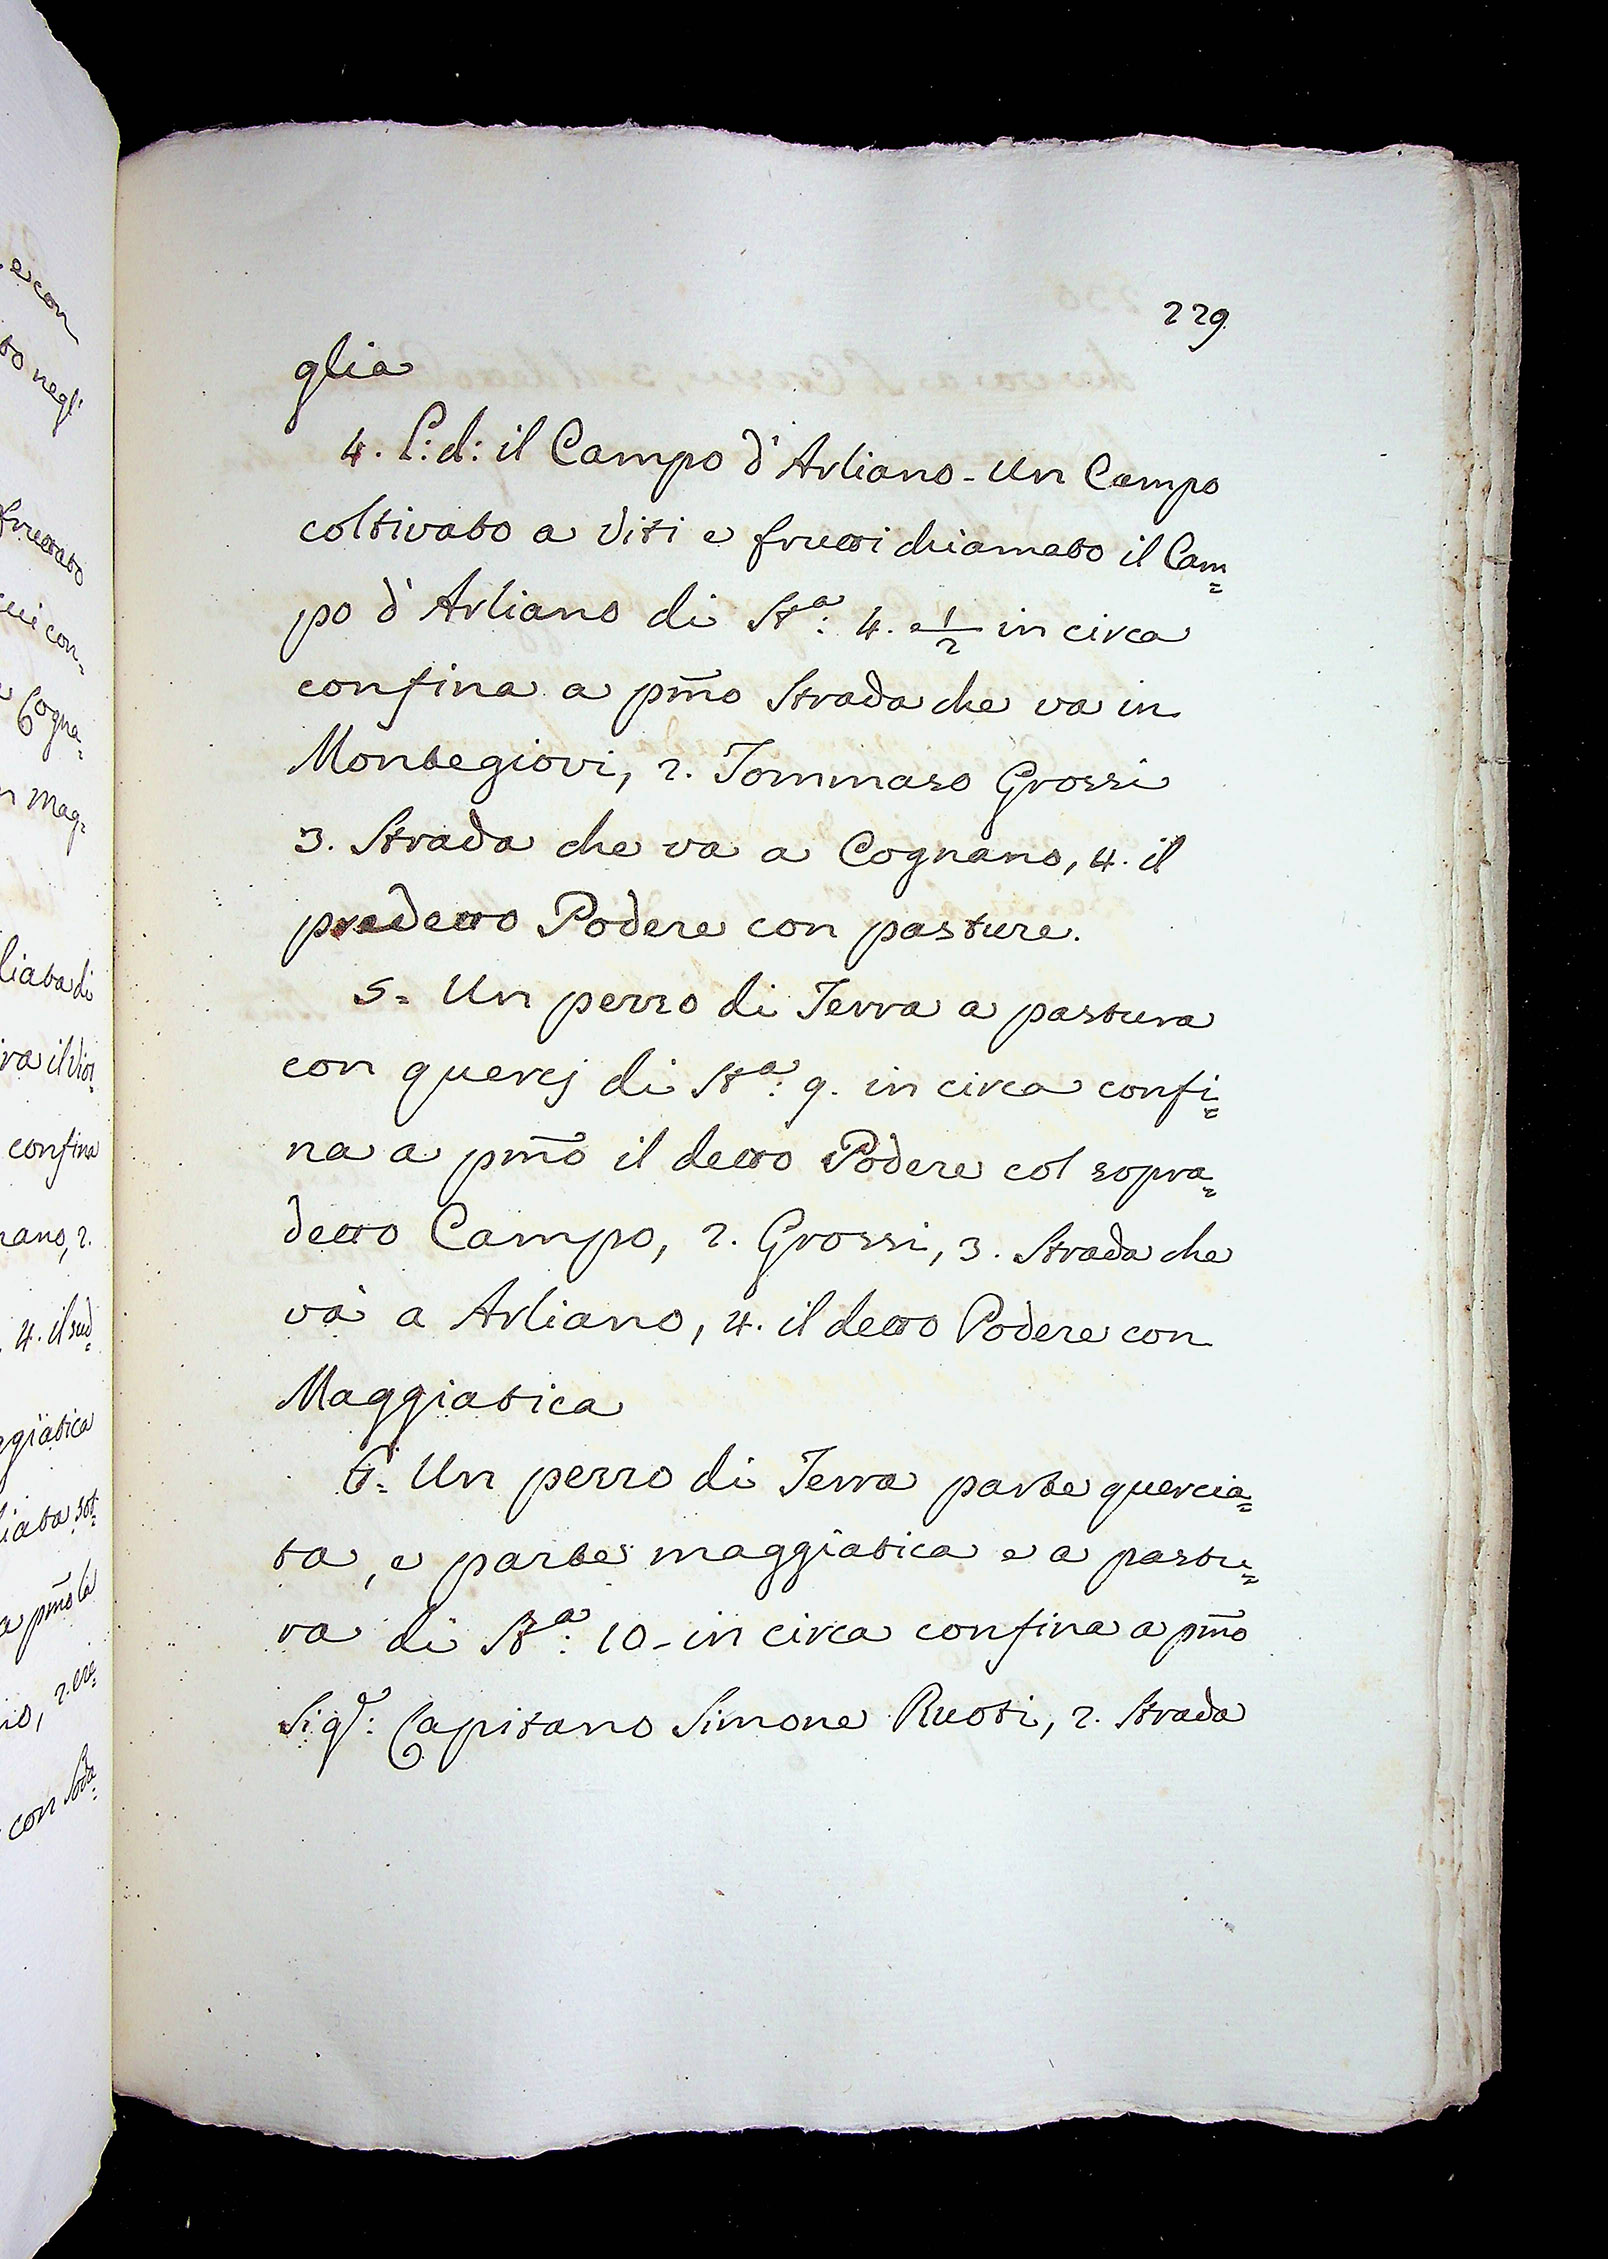 229
glia
4. L: d: il Campo d'Arliano - Un Campo
coltivato a Viti e frutti chiamato il Cam=
po d'Arliano di Sta: 4. e 1/2 in circa
confina a pmo Strada che va in
Montegiovi, 2. Tommaso Grossi
3. Strada che va a Cognano, 4. il
predetto Podere con pasture.
5= Un pezzo di Terra a pastura
con quercj di Sta: 9. in circa confi=
na a pmo il detto Podere col sopra=
detto Campo, 2. Grossi, 3. Strada che
và a Arliano, 4. il detto Podere con
Maggiatica
6= Un pezzo di Terra parte quercia=
ta, e parte maggiatica e a pastu=
ra di Sta: 10 - in circa confina a pmo
Sigr: Capitano Simone Ruoti, 2. Strada
e con
to negl'
fruttato
con=
Cogna=
Mag=
liata di
confina
4. il sud=
a pmo la
con Soda=